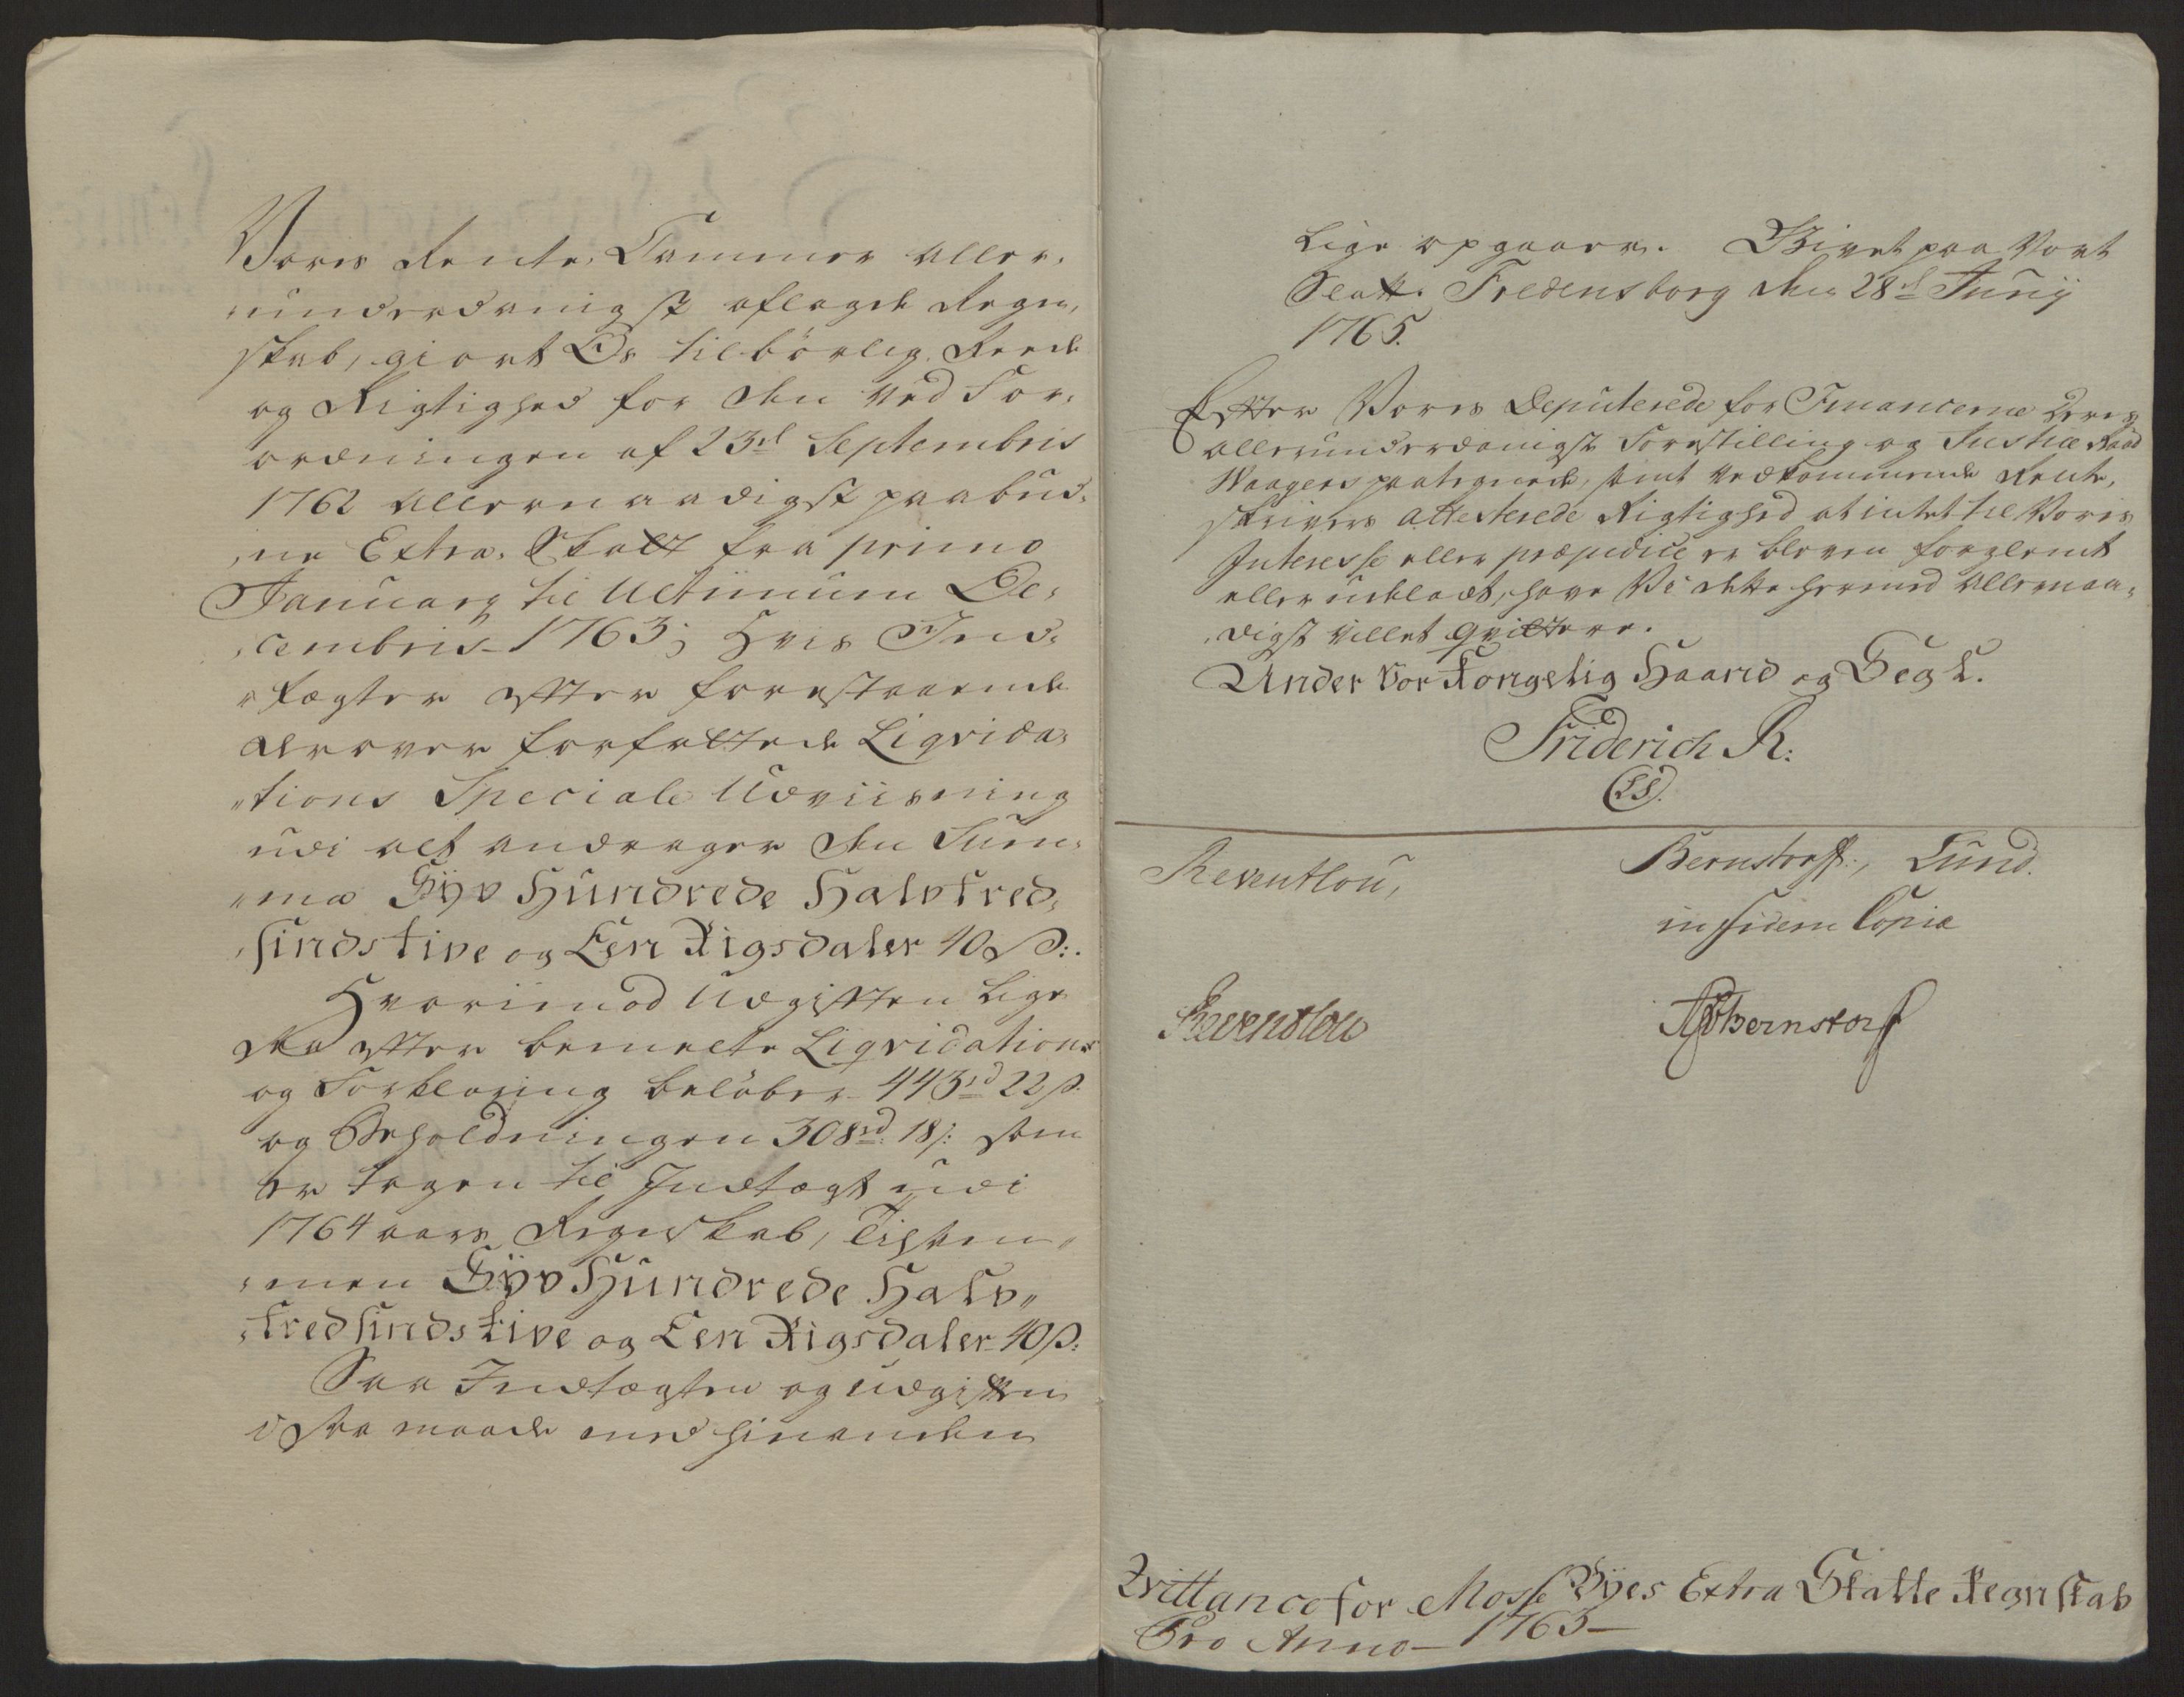 Voris Rente, Cammer aller,
underdanigst aflagde Regn,
skab, giort Os tilbörlig Reede
og Rigtighed for den ved For,
ordningen af 23d Septembris
1762 allernaadigst paabud,
ne Extra, Skatt fra primo
January til Ultimum De,
cembris 1763; Hvis Ind,
tægter efter forestaaende
derover forfattede Liqvida,
tions Speciale Udviisning
udi alt andrager den Sum,
ma Syv Hundrede Halvtred,
sindstive og Een Rigsdaler 40 ß:.
Hvoriimod Udgiften lige
saa efter bemelte Liqvidation
og Forklaring belöber 443rd 22 ß
og Beholdningen 308rd: 18 ß: som
er tagen til Indtægt udi
1764 aars Regnskab, Tilsam,
men Syv Hundrede Halv,
tredsindstive og Een Rigsdaler 40 ß:
Saa Indtægten og Udgiften
i saa maade med hinanden
lige opgaaer. Givet paa Vort
Slott Fredensborg den 28d Junij
1765.
Efter Vores Deputerede for Financerne Deres
allerunderdanigste Forestilling og Justice Raad
Waagers paategnede, samt vedkommende Rente,
skrivers attesterede Rigtighed at intet til Voris
Interesse eller præjudice er bleven forglemt
eller udeladt, have Vi dette hermed allernaa,
digst villet qvittere.
Under Vor Kongelig Haand og Segl.
Friderich R:
(LS).
Reventlou, Bernstorff:, Lund.
in fidem Copiæ
Reventlou Bernstorff
Qvittance for Mosse Byes Extra Skatte Regnskab
Pro Anno 1763